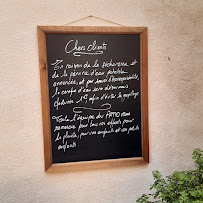 Chers clients
En raison de la sécheresse et
de la pénurie d'eau potable
annoncée, et par souci d'écoresponsabilité,
la carafe d'eau sera désormais
facturée 1€, afin d'éviter le gaspillage
Toute l'équipe du
remercie pour tous vos efforts pour
la planète, pour vos enfants et vos petits
enfants.